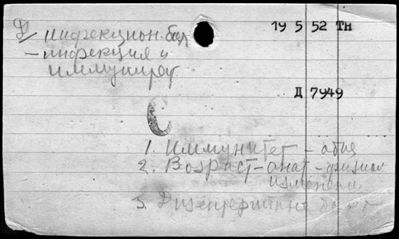 инфекцион. бол 19 5 52 ТН
– инфекция и
иммунитет
Д 7949
1. Иммунитет – общ
2. Возраст – анат – физиол
изменен
3. Дизентерийн